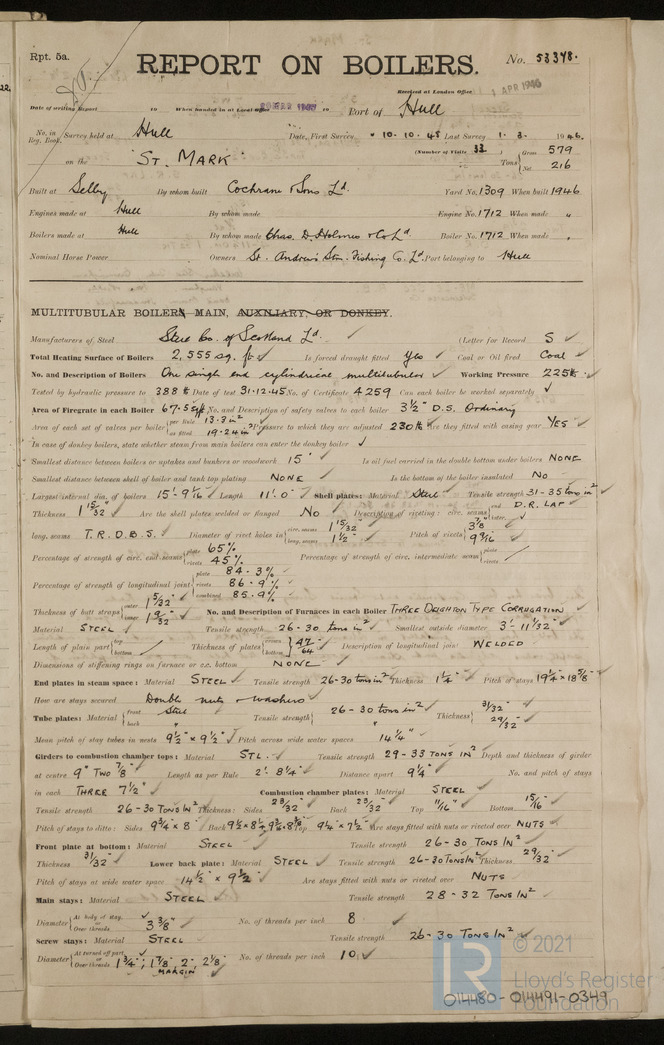 Rpt. 5a.
REPORT ON BOILERS.
No. 53348.
Received at London Office
APR 1946
Date of writing Report 19 When handed in at Local Office 19 Port of Hull
No. in Reg. Book. Survey held at Hull Date, First Survey 10.10.45 Last Survey 1.3. 1946.
(Number of Visits 33)
on the "ST. MARK" Tons Gross 579 Net 216
Built at Selby By whom built Cochrane & Sons Ld. Yard No. 1309 When built 1946
Engines made at Hull By whom made Engine No. 1712 When made "
Boilers made at Hull By whom made Chas. D. Holmes & Co Ld. Boiler No. 1712 When made "
Nominal Horse Power Owners St. Andrew's Stm. Fishing Co. Ld. Port belonging to Hull
MULTITUBULAR BOILER MAIN, AUXILIARY, OR DONKEY.
Manufacturers of Steel Steel Co. of Scotland Ld. (Letter for Record S
Total Heating Surface of Boilers 2,555 sq. ft. Is forced draught fitted Yes Coal or Oil fired Coal
No. and Description of Boilers One single end cylindrical multitubular Working Pressure 225 lb
Tested by hydraulic pressure to 388 lb Date of test 31.12.45 No. of Certificate 4259 Can each boiler be worked separately ✓
Area of Firegrate in each Boiler 67.5 sq ft No. and Description of safety valves to each boiler 3½" D.S. Ordinary
Area of each set of valves per boiler per Rule 13.3 in² as fitted 19.24 in² Pressure to which they are adjusted 230 lb Are they fitted with easing gear YES
In case of donkey boilers, state whether steam from main boilers can enter the donkey boiler ✓
Smallest distance between boilers or uptakes and bunkers or woodwork 15" Is oil fuel carried in the double bottom under boilers NONE
Smallest distance between shell of boiler and tank top plating NONE Is the bottom of the boiler insulated NO
Largest internal dia. of boilers 15'-9 1/16" Length 11'.0" Shell plates: Material Steel Tensile strength 31-35 tons in²
Thickness 1 15/32" Are the shell plates welded or flanged No Description of riveting: circ. seams end D.R. LAP inter.
long. seams T.R.D.B.S. Diameter of rivet holes in circ. seams 1 15/32" long. seams 1 1/2" Pitch of rivets 3 7/8" 9 9/16"
Percentage of strength of circ. end seams plate 65% rivets 45% Percentage of strength of circ. intermediate seam plate rivets
Percentage of strength of longitudinal joint plate 84.3% rivets 86.9% combined 85.9%
Thickness of butt straps outer 1 5/32" inner 1 9/32" No. and Description of Furnaces in each Boiler THREE DEIGHTON TYPE CORRUGATION
Material STEEL Tensile strength 26-30 tons in² Smallest outside diameter 3'-11 1/32"
Length of plain part top bottom Thickness of plates crown bottom 47/64" Description of longitudinal joint WELDED
Dimensions of stiffening rings on furnace or c.c. bottom NONE
End plates in steam space: Material STEEL Tensile strength 26-30 tons in² Thickness 1 1/4" Pitch of stays 19 1/4" × 18 5/8"
How are stays secured Double nuts & washers
Tube plates: Material front Steel back " Tensile strength 26-30 tons in² " Thickness 31/32" 29/32"
Mean pitch of stay tubes in nests 9 1/2" × 9 1/2" Pitch across wide water spaces 14 1/4"
Girders to combustion chamber tops: Material STL. Tensile strength 29-33 TONS IN² Depth and thickness of girder
at centre 9" TWO 7/8" Length as per Rule 2'. 8 1/4" Distance apart 9 1/4" No. and pitch of stays
in each THREE 7 1/2" Combustion chamber plates: Material STEEL
Tensile strength 26-30 TONS IN² Thickness: Sides 23/32" Back 23/32" Top 11/16" Bottom 15/16"
Pitch of stays to ditto: Sides 9 3/4" × 8" Back Top 9 1/4" × 7 1/2" Are stays fitted with nuts or riveted over NUTS
Front plate at bottom: Material STEEL Tensile strength 26-30 TONS IN²
Thickness 31/32" Lower back plate: Material STEEL Tensile strength 26-30 TONS IN² Thickness 29/32"
Pitch of stays at wide water space 14 1/2" × 9 1/2" Are stays fitted with nuts or riveted over NUTS
Main stays: Material STEEL Tensile strength 28-32 TONS IN²
Diameter At body of stay, or Over threads 3 3/8" No. of threads per inch 8
Screw stays: Material STEEL Tensile strength 26-30 TONS IN²
Diameter At turned off part, or Over threads 1 3/4"; 1 7/8"; 2"; 2 1/8" MARGIN No. of threads per inch 10
LR
© 2021
Lloyd's Register
Foundation
014480-014491-0349